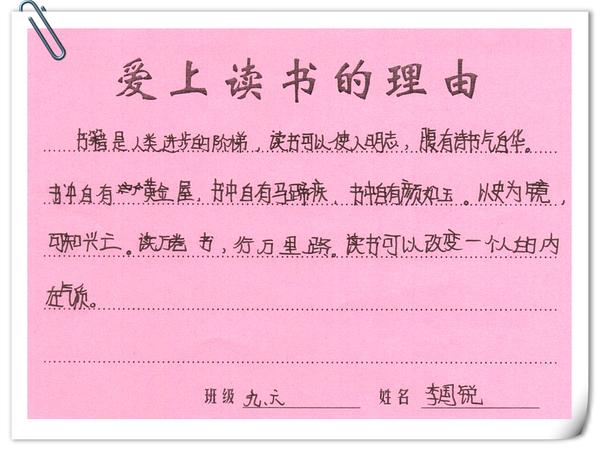 爱上读书的理由
书籍是人类进步的阶梯，读书可以使人明志，腹有诗书气自华。
书中自有黄金屋，书中自有马蹄疾，书中自有颜如玉。以史为镜，
可知兴亡。读万卷书，行万里路。读书可以改变一个人的内
在气质。
班级 九.元 姓名 李周锐